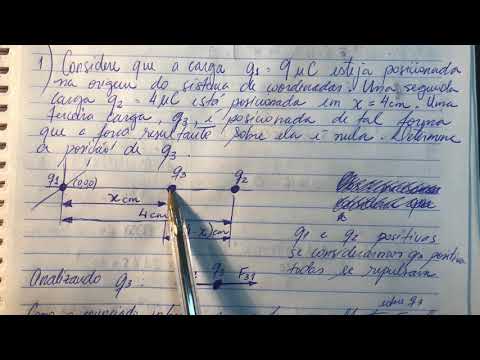 1) Considere que a carga q1 = 9μC esteja posicionada
na origem do sistema de coordenadas. Uma segunda
carga q2 = 4μC está posicionada em x = 4cm. Uma
terceira carga, q3, é posicionada de tal forma
que a força resultante sobre ela é nula. Determine
a posição de q3.
q1 (0,0) q3 q2
x cm
4 cm
-x) cm
q1 e q2 positivas
se considerarmos q3 positiva
todas se repulsam
Analizando q3: q3 F31
sobre q3
Como o enunciado